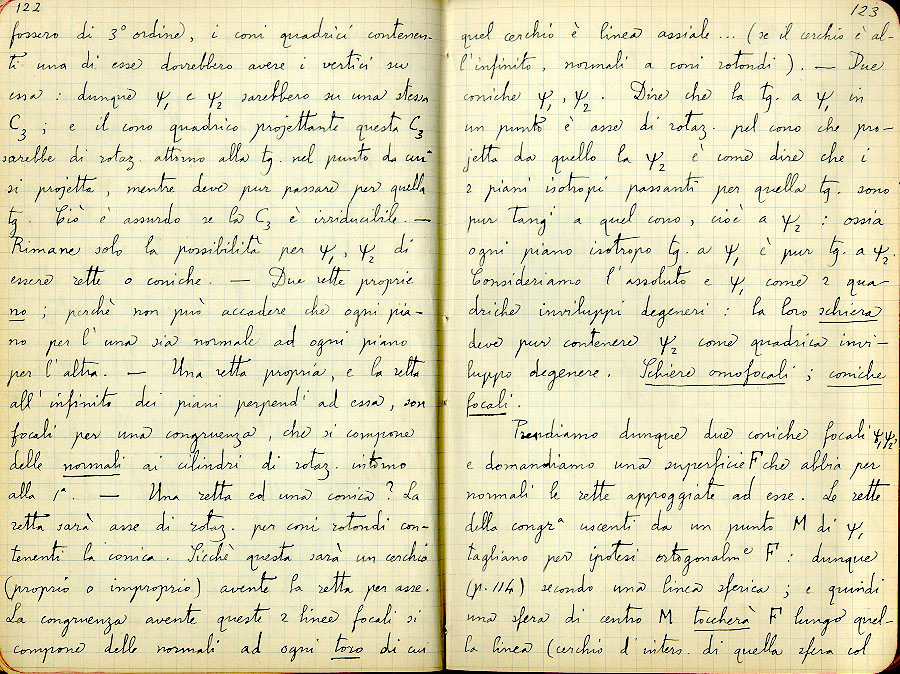 122
fossero di 3° ordine), i coni quadrici contenen-
ti una di esse dovrebbero avere i vertici su
essa : dunque ψ₁ e ψ₂ sarebbero su una stessa
C₃ ; e il cono quadrico projettante questa C₃
sarebbe di rotaz. attorno alla tg. nel punto da cui
si projetta, mentre deve pur passare per quella
tg. Ciò è assurdo se la C₃ è irriducibile. —
Rimane solo la possibilità per ψ₁, ψ₂ di
essere rette o coniche. — Due rette proprie
no ; perchè non può accadere che ogni pia-
no per l'una sia normale ad ogni piano
per l'altra. — Una retta propria, e la retta
all'infinito dei piani perpendi ad essa, son
focali per una congruenza, che si compone
delle normali ai cilindri di rotaz. intorno
alla 1ª. — Una retta ed una conica? La
retta sarà asse di rotaz. per coni rotondi con-
tenenti la conica. Sicchè questa sarà un cerchio
(proprio o improprio) avente la retta per asse.
La congruenza avente queste 2 linee focali si
compone delle normali ad ogni toro di cui
123
quel cerchio è linea assiale ... (se il cerchio è al-
l'infinito, normali a coni rotondi). — Due
coniche ψ₁, ψ₂. Dire che la tg. a ψ₁ in
un punto è asse di rotaz. pel cono che pro-
jetta da quello la ψ₂ è come dire che i
2 piani isotropi passanti per quella tg. sono
pur tangi a quel cono, cioè a ψ₂ : ossia
ogni piano isotropo tg. a ψ₁ è pur tg. a ψ₂.
Consideriamo l'assoluto e ψ₁ come 2 qua-
driche inviluppi degeneri : la loro schiera
deve pur contenere ψ₂ come quadrica invi-
luppo degenere. Schiere omofocali ; coniche
focali.
Prendiamo dunque due coniche focali ψ₁ψ₂,
e domandiamo una superficie F che abbia per
normali le rette appoggiate ad esse. Le rette
della congrª uscenti da un punto M di ψ₁
tagliano per ipotesi ortogonalmᵉ F : dunque
(p. 114) secondo una linea sferica ; e quindi
una sfera di centro M toccherà F lungo quel-
la linea (cerchio d'inters. di quella sfera col